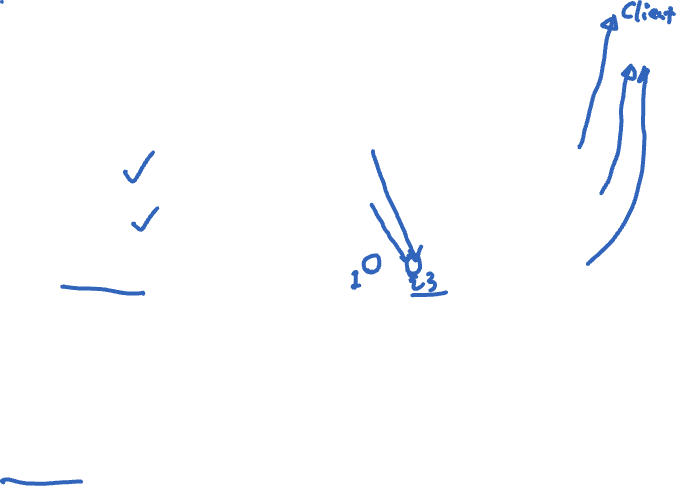 Client
1 23